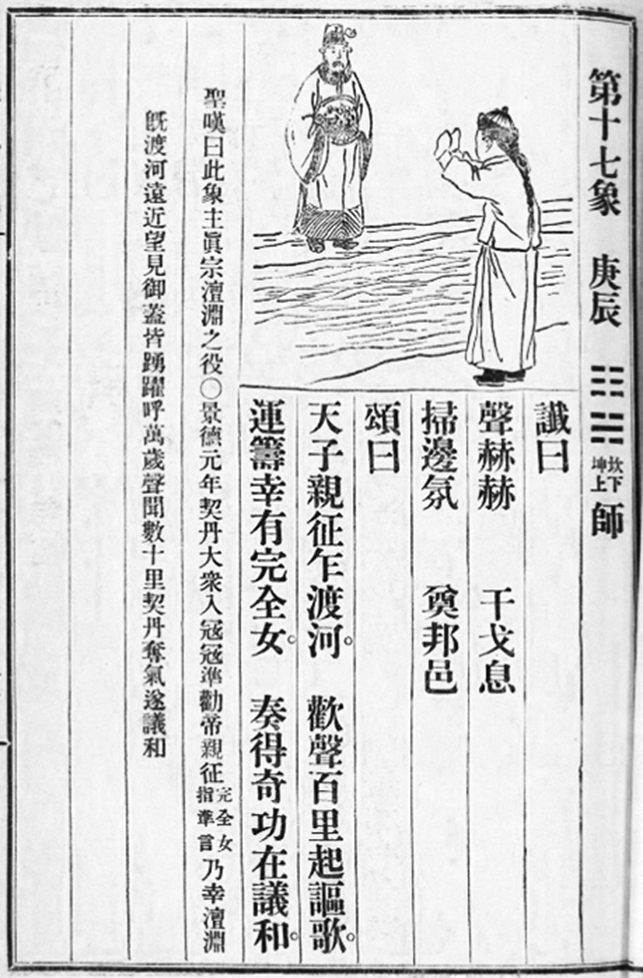 第十七象 庚辰 ䷆ 坎下坤上 師
讖曰
聲赫赫 干戈息
掃邊氛 奠邦邑
頌曰
天子親征乍渡河。 歡聲百里起謳歌。
運籌幸有完全女。 奏得奇功在議和。
聖嘆曰此象主眞宗澶淵之役〇景德元年契丹大衆入冦冦準勸帝親征完全女指準言乃幸澶淵
旣渡河遠近望見御蓋皆踴躍呼萬歲聲聞數十里契丹奪氣遂議和